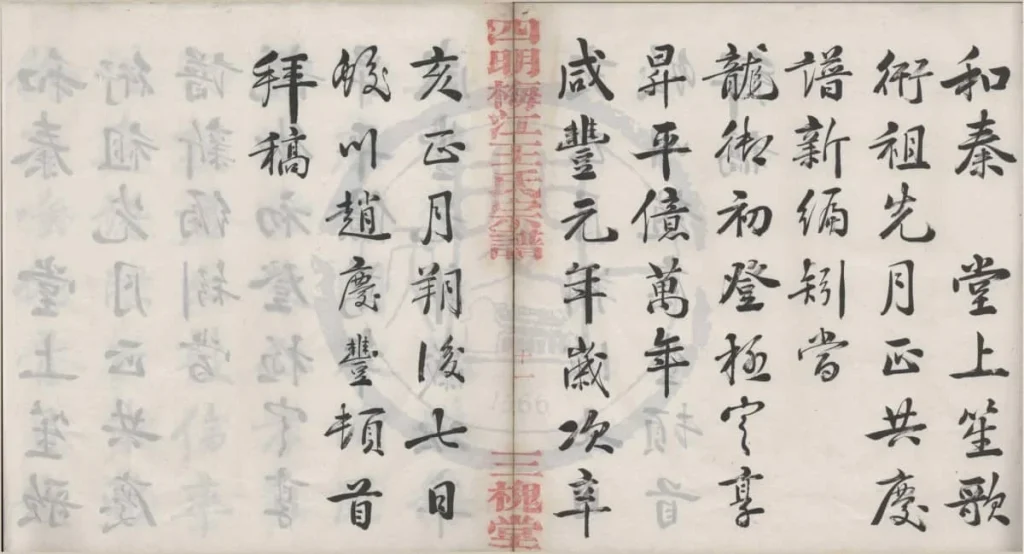 和奏 堂上笙歌
衎祖先月正共慶
譜新編矧當
龍御初登極定享
昇平億萬年
咸豐元年歲次辛
四明梅江王氏宗譜
十一
三槐堂
亥正月朔後七日
蛟川趙慶豐頓首
拜稿